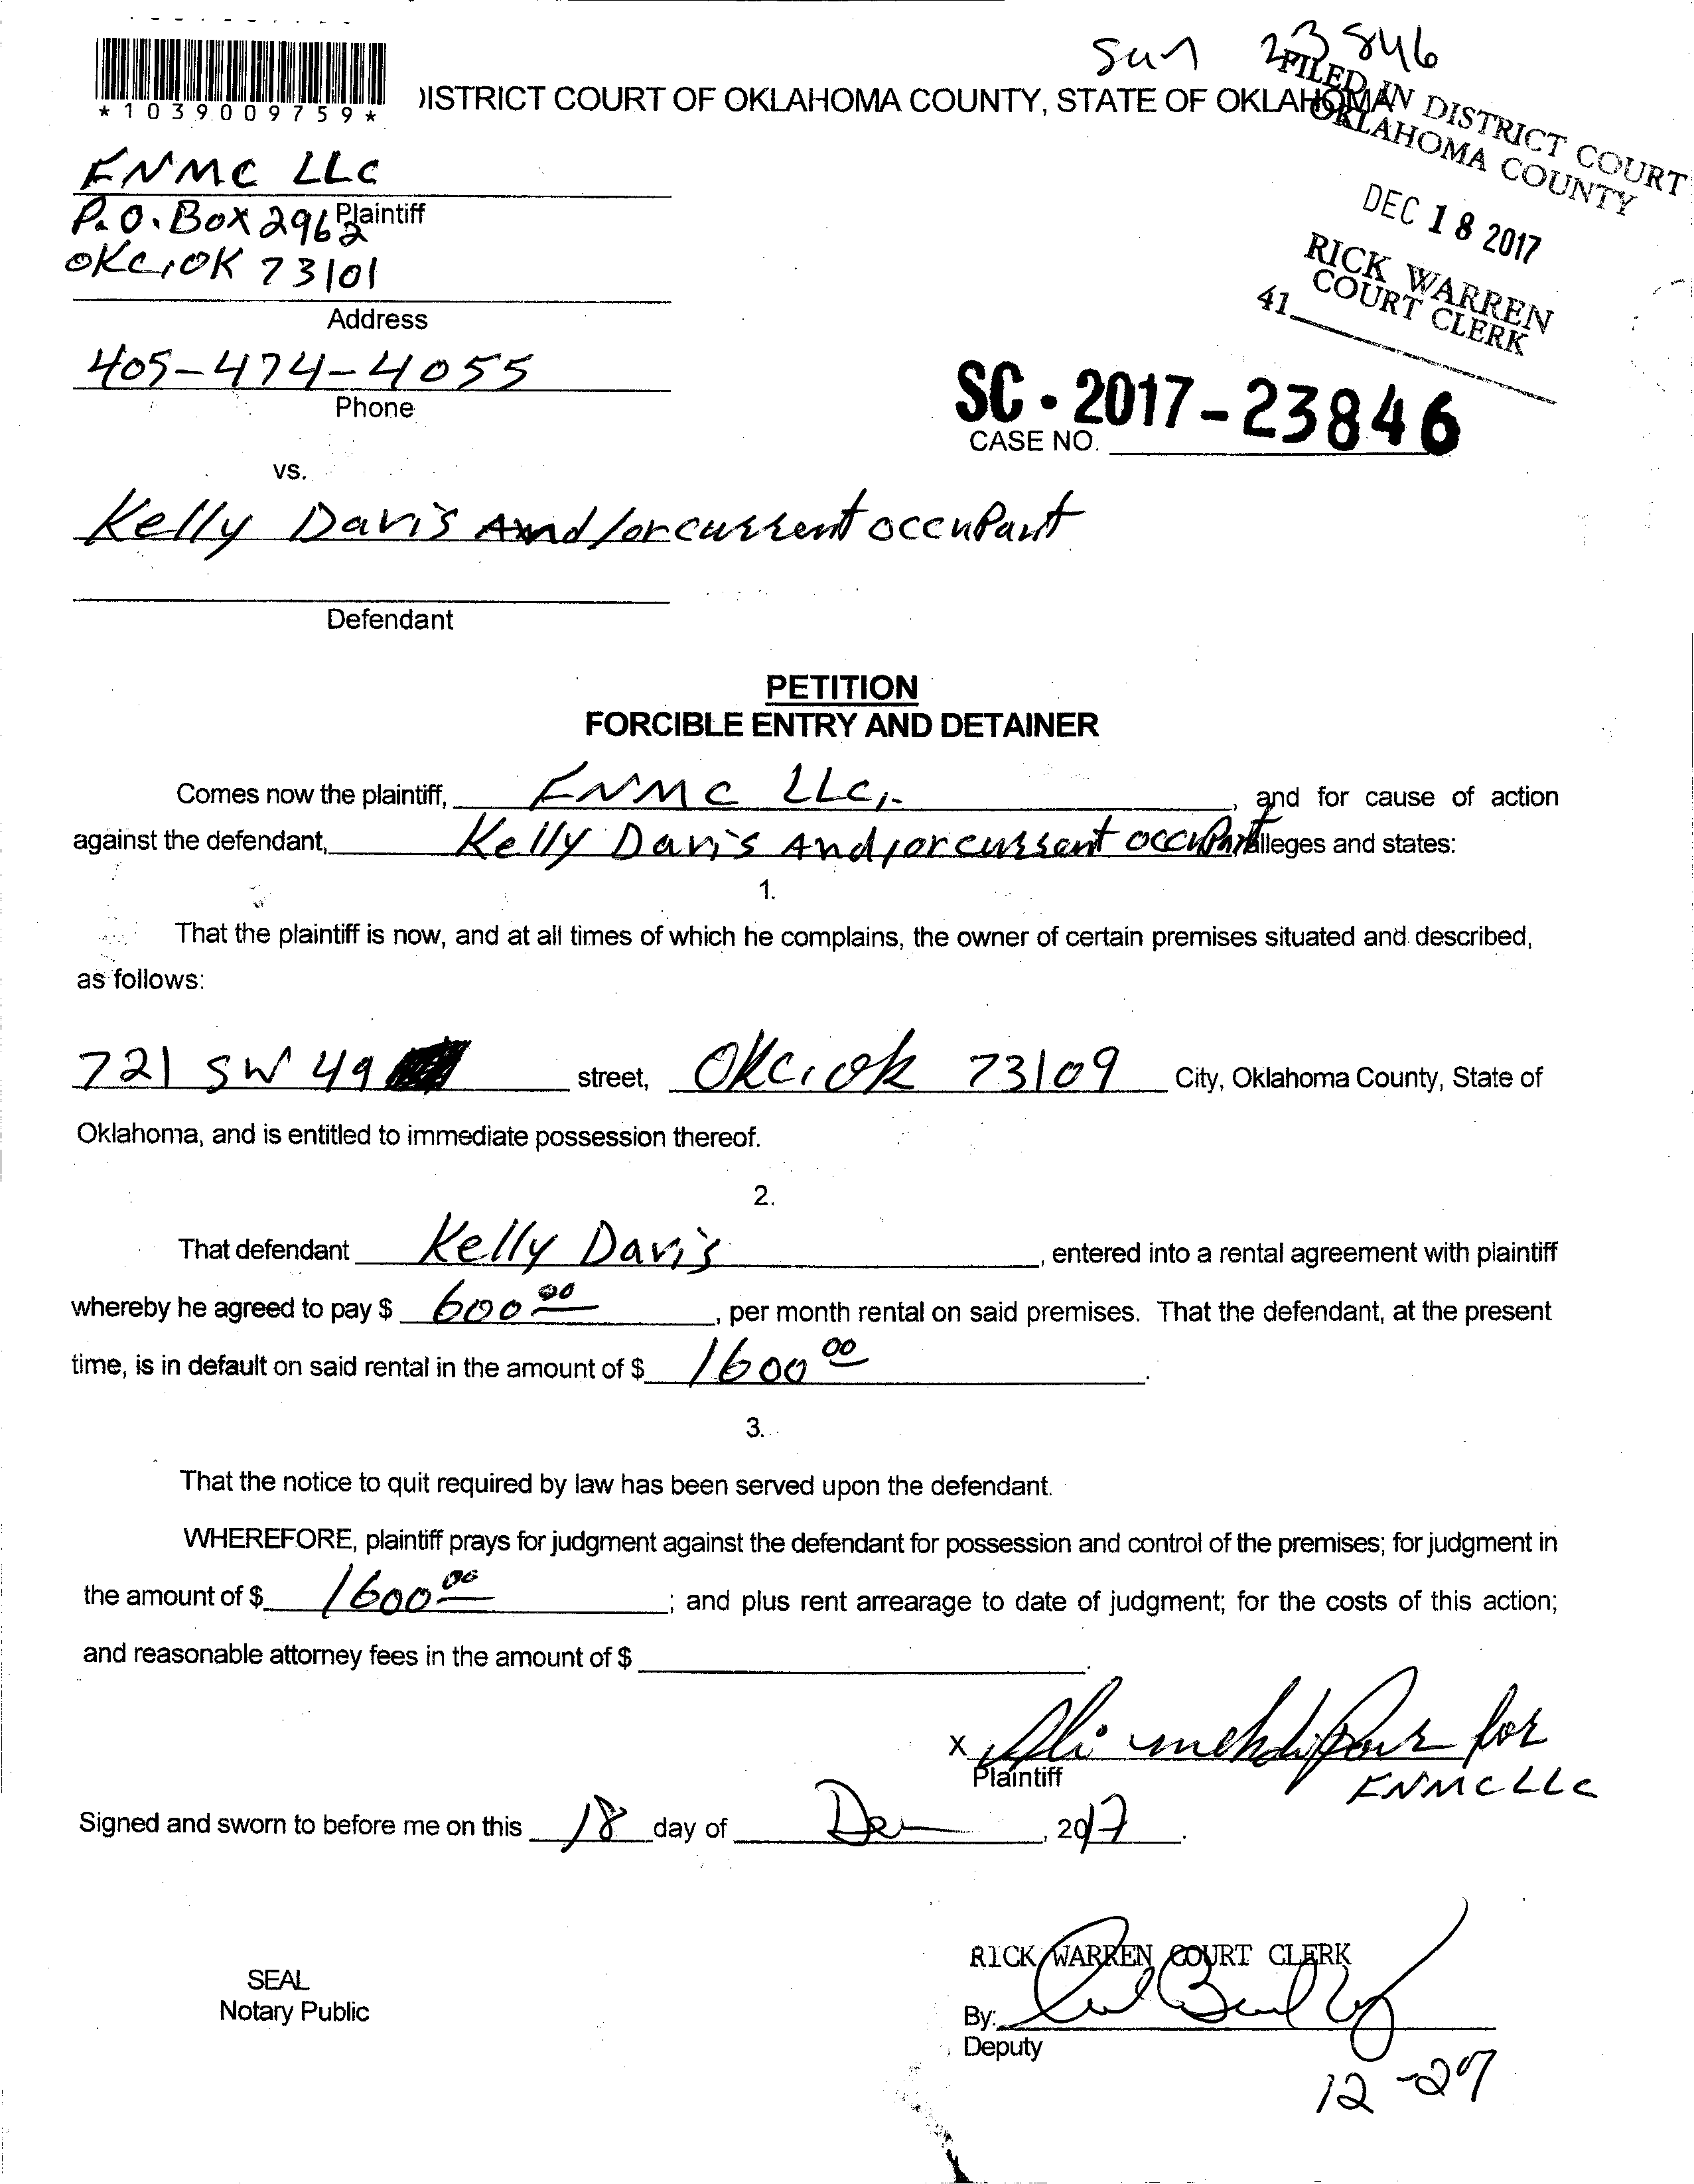 Sun 23846
*1039009759*
)ISTRICT COURT OF OKLAHOMA COUNTY, STATE OF OKLAHOMA
FILED IN DISTRICT COURT
OKLAHOMA COUNTY
DEC 18 2017
RICK WARREN
COURT CLERK
41
ENMC LLC
Plaintiff
P.O. Box 2962
OKC, OK 73101
Address
405-474-4055
Phone
SC - 2017-23846
CASE NO.
vs.
Kelly Davis And/or current occupant
Defendant
PETITION
FORCIBLE ENTRY AND DETAINER
Comes now the plaintiff, ENMC LLC, , and for cause of action
against the defendant, Kelly Davis And/or current occupant alleges and states:
1.
That the plaintiff is now, and at all times of which he complains, the owner of certain premises situated and described,
as follows:
721 SW 49 street, OKC, OK 73109 City, Oklahoma County, State of
Oklahoma, and is entitled to immediate possession thereof.
2.
That defendant Kelly Davis, entered into a rental agreement with plaintiff
whereby he agreed to pay $ 600 00, per month rental on said premises. That the defendant, at the present
time, is in default on said rental in the amount of $ 1600 00.
3.
That the notice to quit required by law has been served upon the defendant.
WHEREFORE, plaintiff prays for judgment against the defendant for possession and control of the premises; for judgment in
the amount of $ 1600 00; and plus rent arrearage to date of judgment; for the costs of this action;
and reasonable attorney fees in the amount of $ .
X Ali mehdipour for
Plaintiff ENMC LLC
Signed and sworn to before me on this 18 day of Dec, 2017.
RICK WARREN COURT CLERK
SEAL
Notary Public
By:
Deputy
12-27